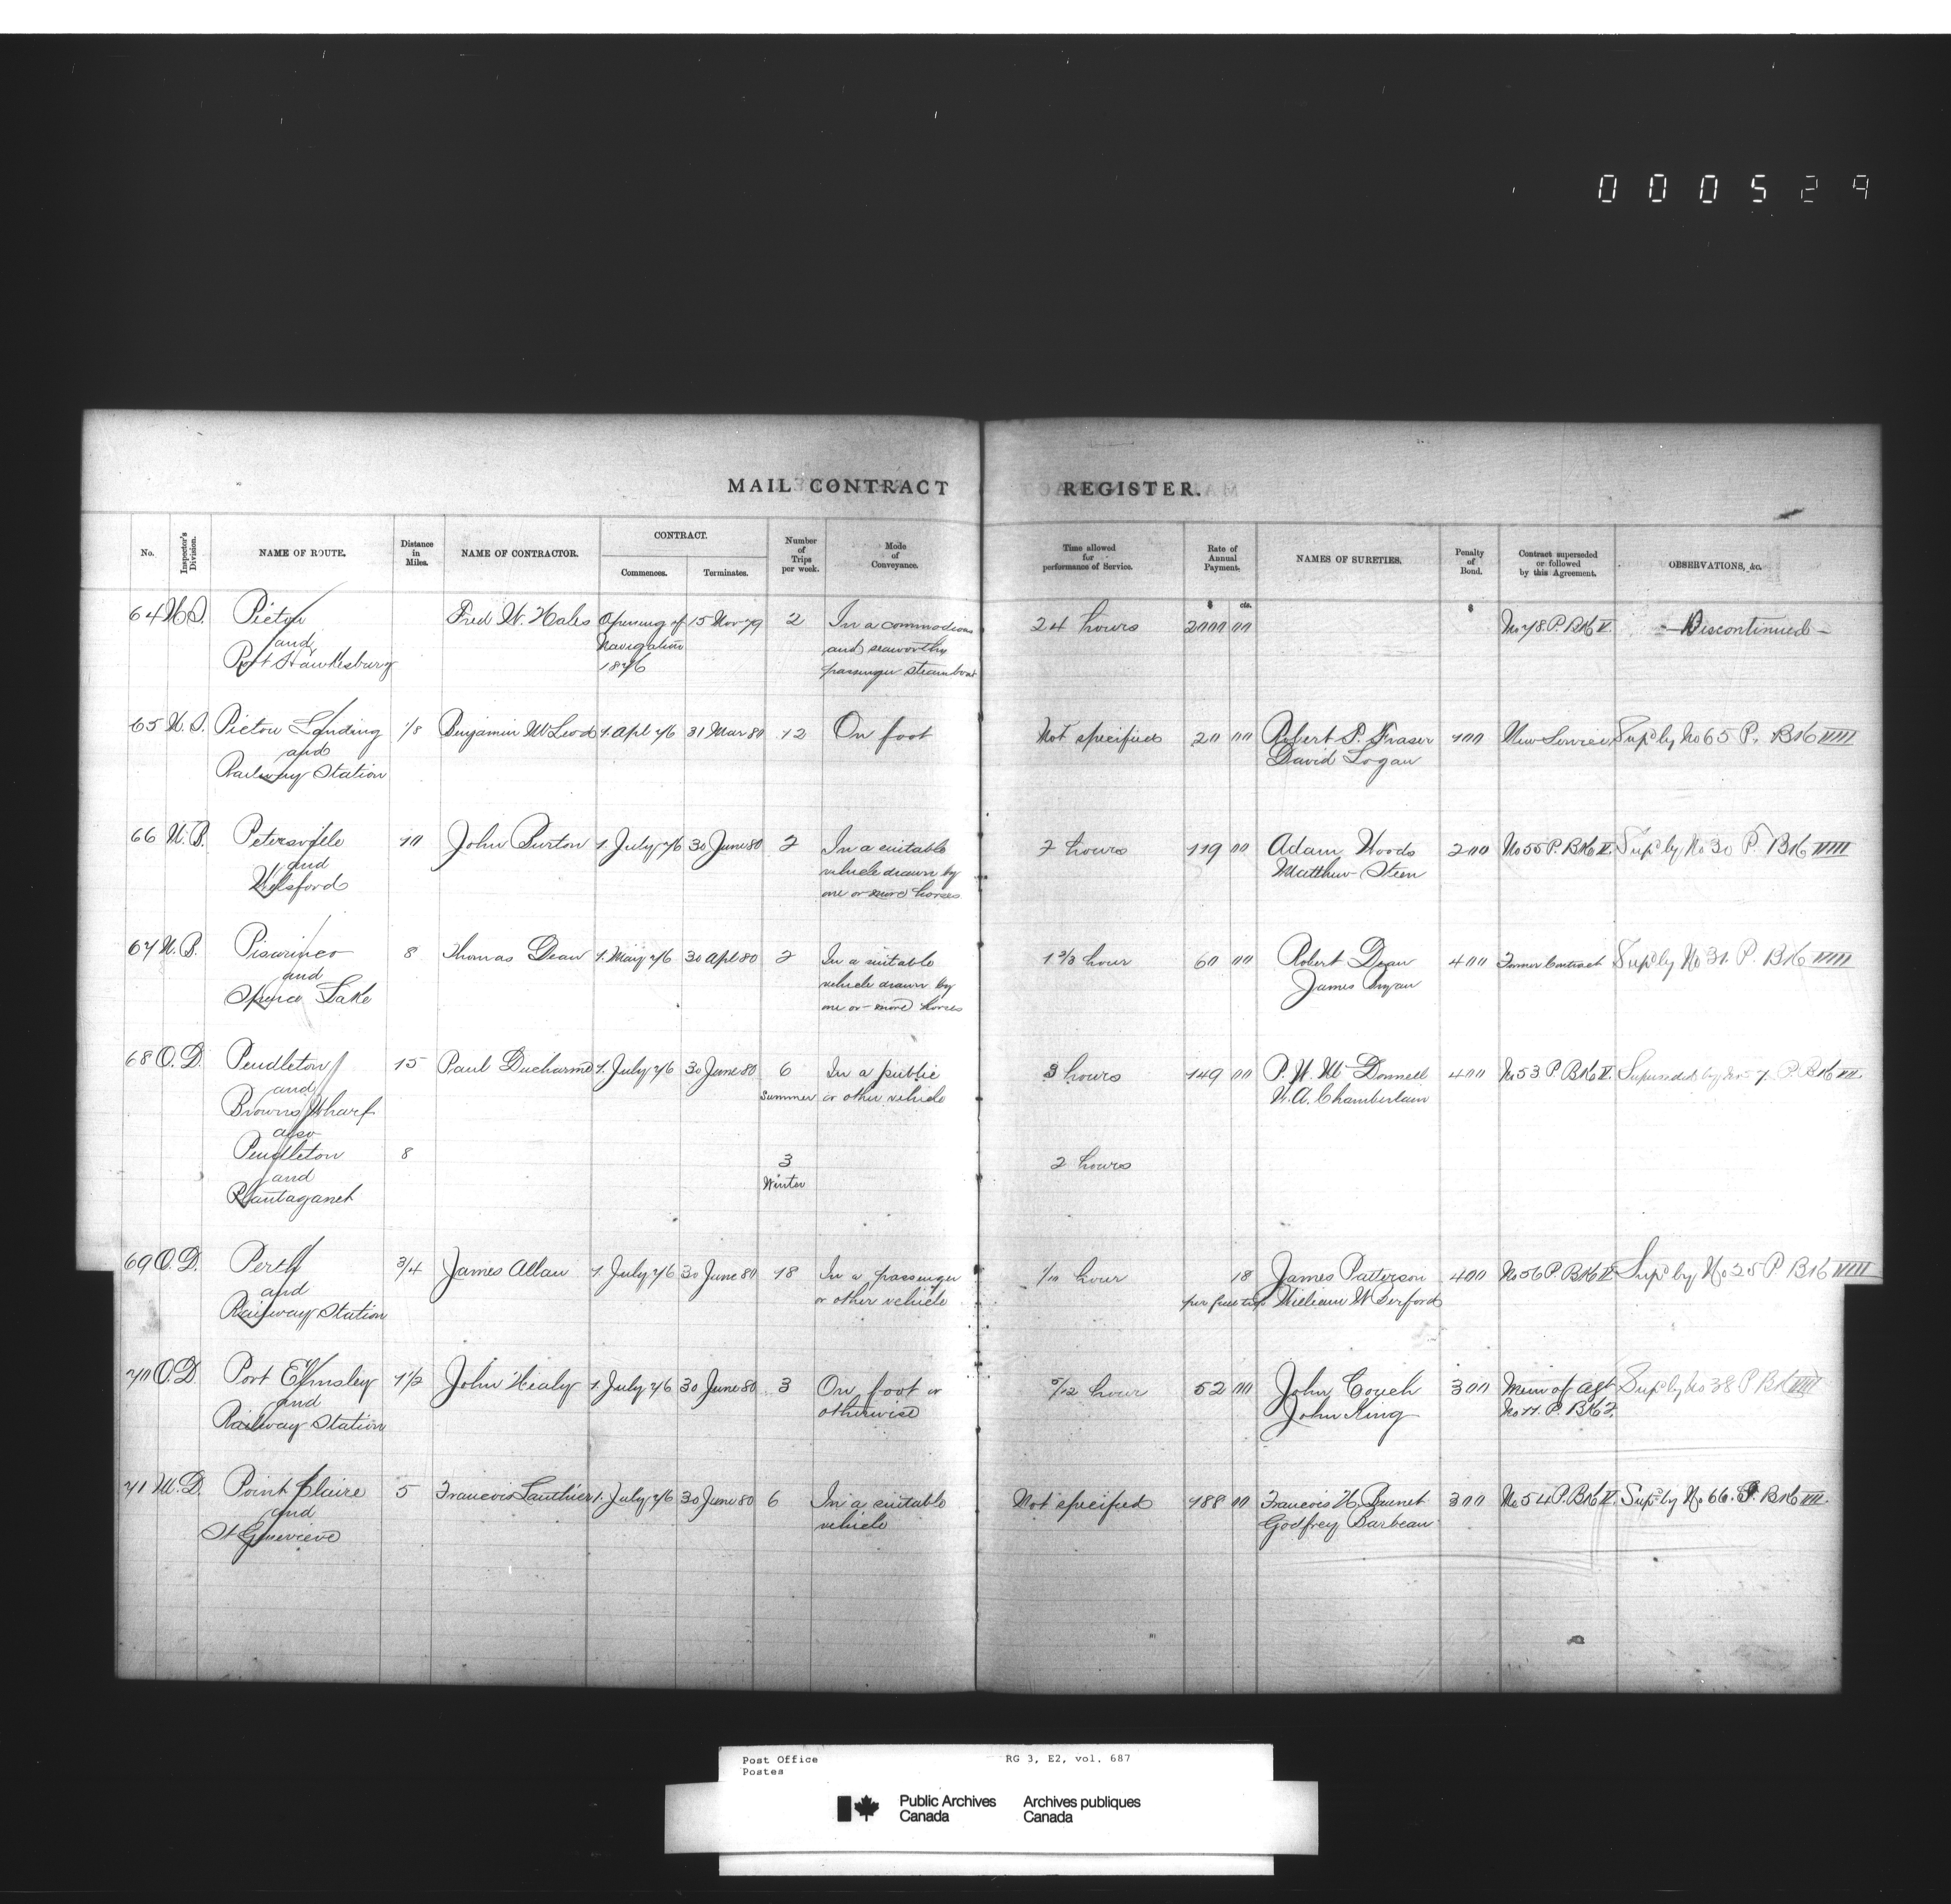 000529
MAIL CONTRACT REGISTER.
No. Inspector's Division. NAME OF ROUTE. Distance in Miles. NAME OF CONTRACTOR. CONTRACT. Commences. Terminates. Number of Trips per week. Mode of Conveyance. Time allowed for performance of Service. Rate of Annual Payment. NAMES OF SURETIES. Penalty of Bond. Contract superseded or followed by this Agreement. OBSERVATIONS, &c.
$ cts. $
64 N.S. Pictou Fred W. Hales Opening of 15 Nov 79 2 In a commodious 24 hours 2000 00 No 78 P. Bk V. Discontinued
and Navigation and seaworthy
Port Hawkesburg 1876 passenger steamboat
65 N.S. Pictou Landing 1/8 Benjamin McLeod 1 Apl 76 31 Mar 80 12 On foot Not specified 20 00 Robert P. Fraser 100 New Service Supd by No 65 P. Bk VIII
and David Logan
Railway Station
66 N.B. Petersville 10 John Burton 1 July 76 30 June 80 2 In a suitable 2 hours 119 00 Adam Woods 200 No 55 P. Bk V. Supd by No 30 P. Bk VIII
and vehicle drawn by Matthew Steen
Welsford one or more horses
67 N.B. Pisarinco 8 Thomas Dean 1 May 76 30 Apl 80 2 In a suitable 1 2/3 hour 60 00 Robert Dean 400 Former Contract Supd by No 31. P. Bk VIII
and vehicle drawn by James
Spruce Lake one or more horses
68 O.D. Pendleton 15 Paul Ducharme 1 July 76 30 June 80 6 In a public 3 hours 149 00 P. W. McDonnell 400 No 53 P Bk V. Superseded by P. Bk VII
and Summer or other vehicle W. A. Chamberlain
Browns Wharf
also
Pendleton 8 3 2 hours
and Winter
Plantaganet
69 O.D. Perth 3/4 James Allan 1 July 76 30 June 80 18 In a passenger 1/10 hour 18 James Patterson 400 No 56 P. Bk V Supd by No 25 P Bk VIII
and or other vehicle per trip William W Berford
Railway Station
70 O.D. Port Elmsley 1 1/2 John Healy 1 July 76 30 June 80 3 On foot or 5/12 hour 52 00 John Couch 300 Mem of agt Supd by No 38 P Bk VIII
and otherwise John King No 11. P. Bk 2.
Railway Station
71 M.D. Point Claire 5 Francois Lauthier 1 July 76 30 June 80 6 In a suitable Not specified 188 00 Francois H. Brunet 300 No 54 P. Bk V. Supd by No 66. P. Bk VII.
and vehicle Godfrey Barbeau
St Genevieve
Post Office RG 3, E2, vol. 687
Postes
Public Archives Archives publiques
Canada Canada